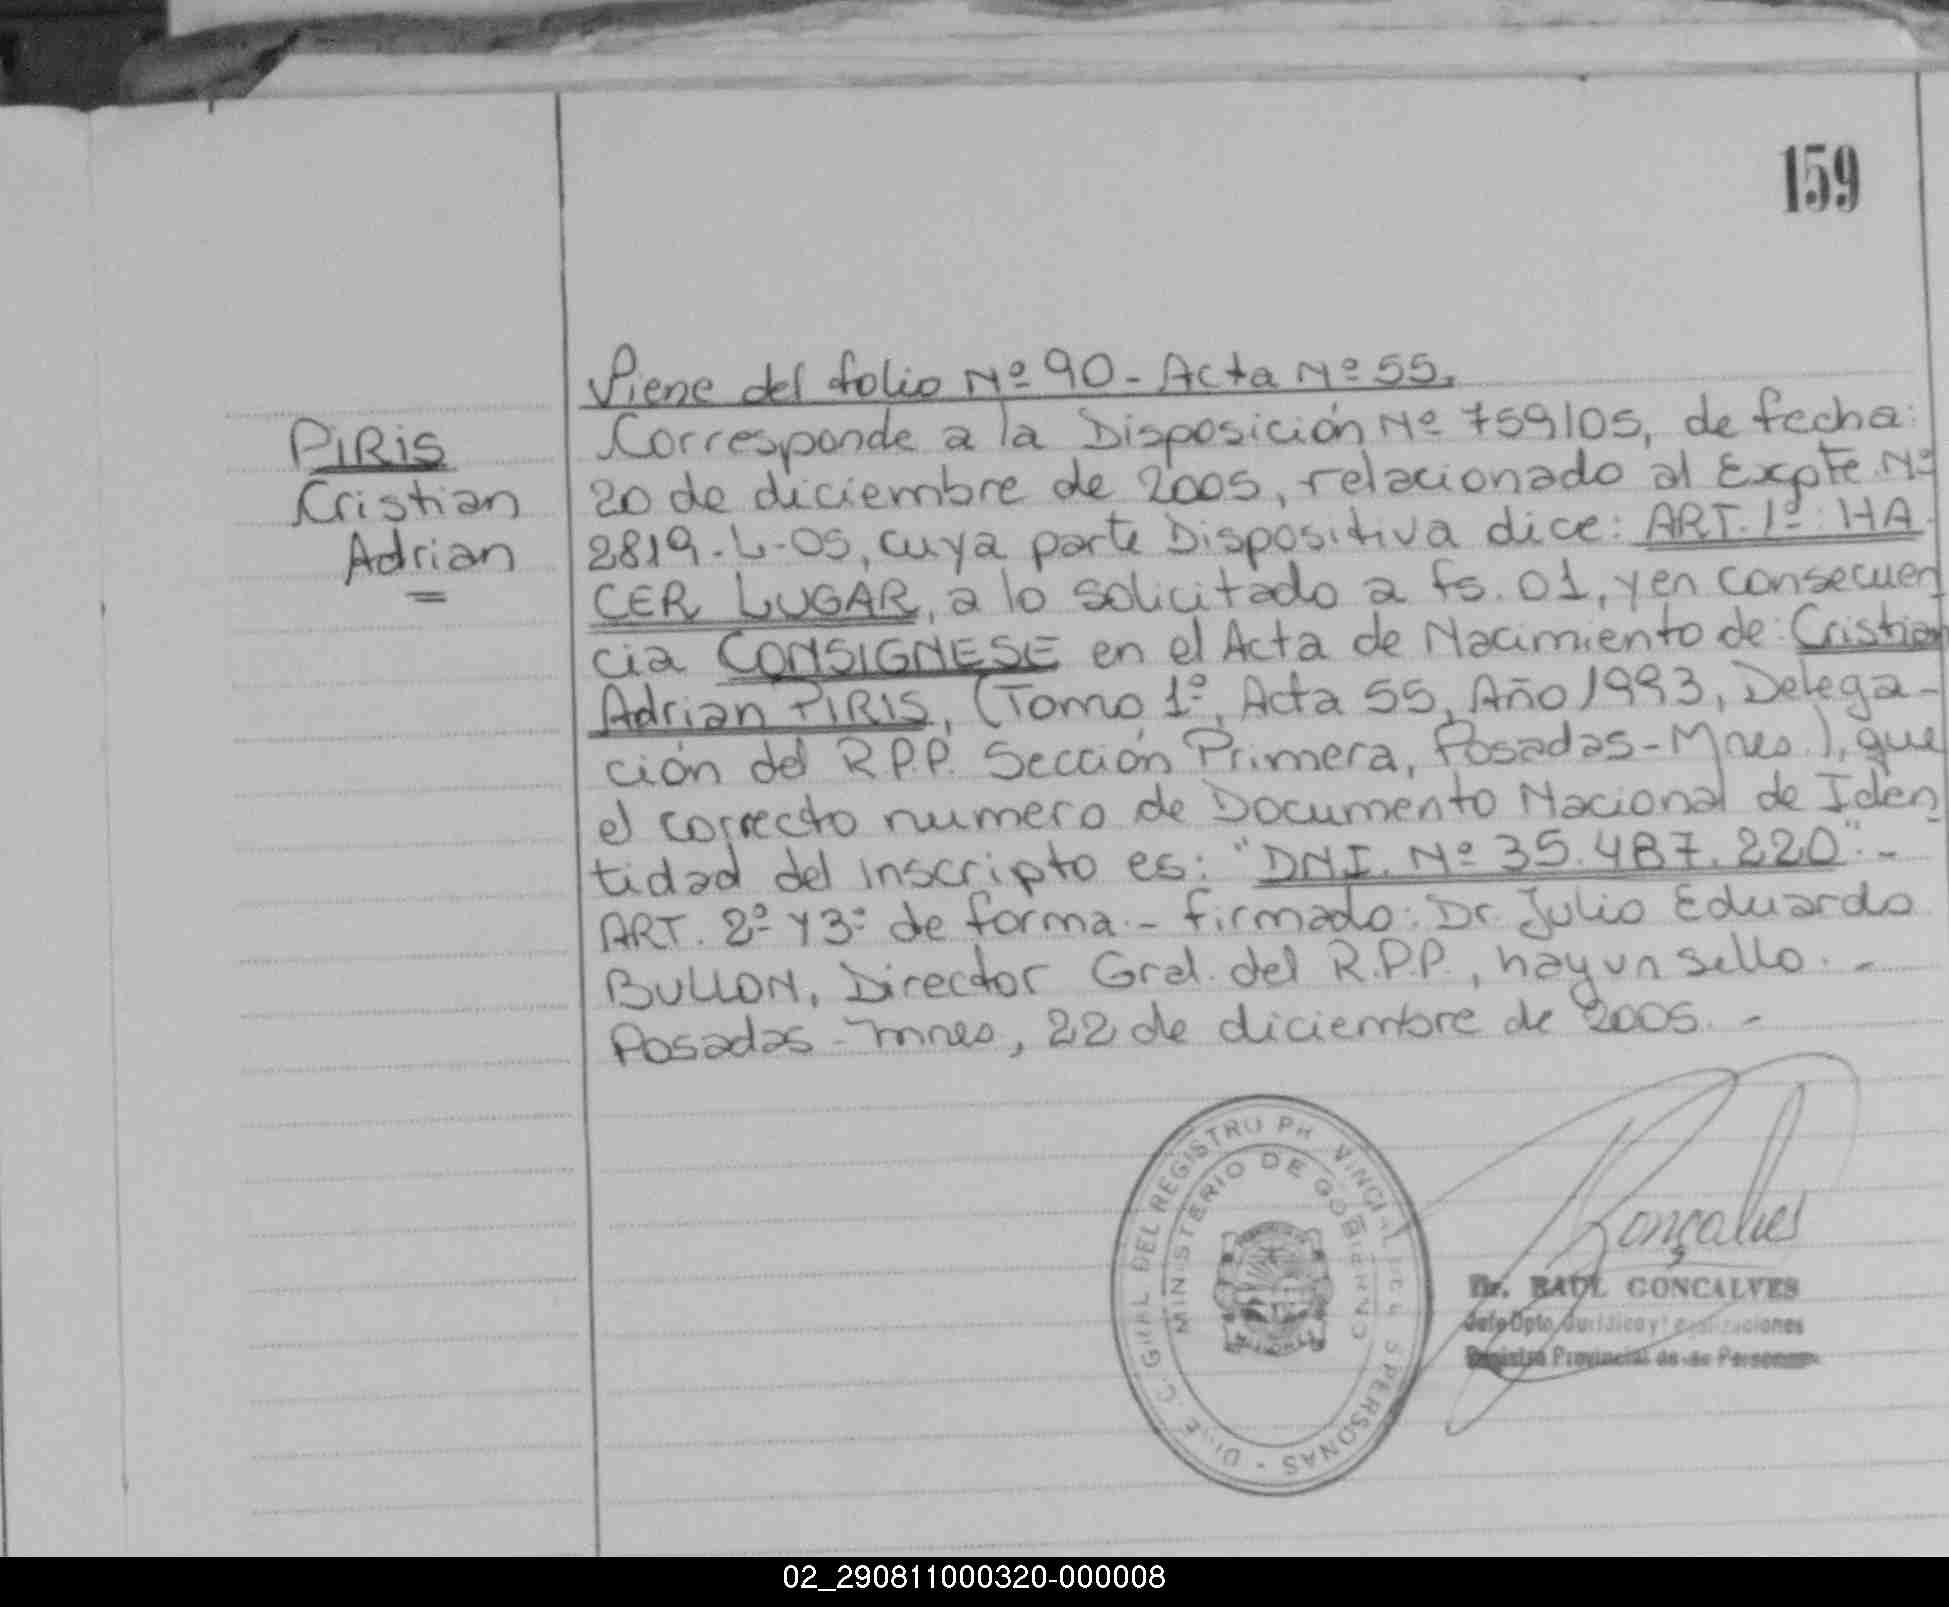 159
Viene del folio Nº 90 - Acta Nº 55.
PIRIS
Cristian
Adrian
Corresponde a la Disposición Nº 759/05, de fecha:
20 de diciembre de 2005, relacionado al Expte. Nº
2819-L-05, cuya parte Dispositiva dice: ART. 1º: HA
CER LUGAR, a lo solicitado a fs. 01, y en consecuen
cia CONSIGNESE en el Acta de Nacimiento de: Cristian
Adrian PIRIS, (Tomo 1º, Acta 55, Año 1993, Delega-
ción del R.P.P. Sección Primera, Posadas-Mnes.), que
el correcto numero de Documento Nacional de Iden
tidad del inscripto es: "DNI. Nº 35.487.220".-
ART. 2º y 3º de forma.- firmado: Dr. Julio Eduardo
BULLON, Director Gral. del R.P.P., hay un sello.-
Posadas-Mnes, 22 de diciembre de 2005.-
GRAL DEL REGISTRO PROVINCIAL PERSONAS
MINISTERIO DE GOBIERNO
Gonçalves
Dr. RAUL GONCALVES
Jefe Dpto. Jurídico y
Registro Provincial de Personas
02_290811000320-000008